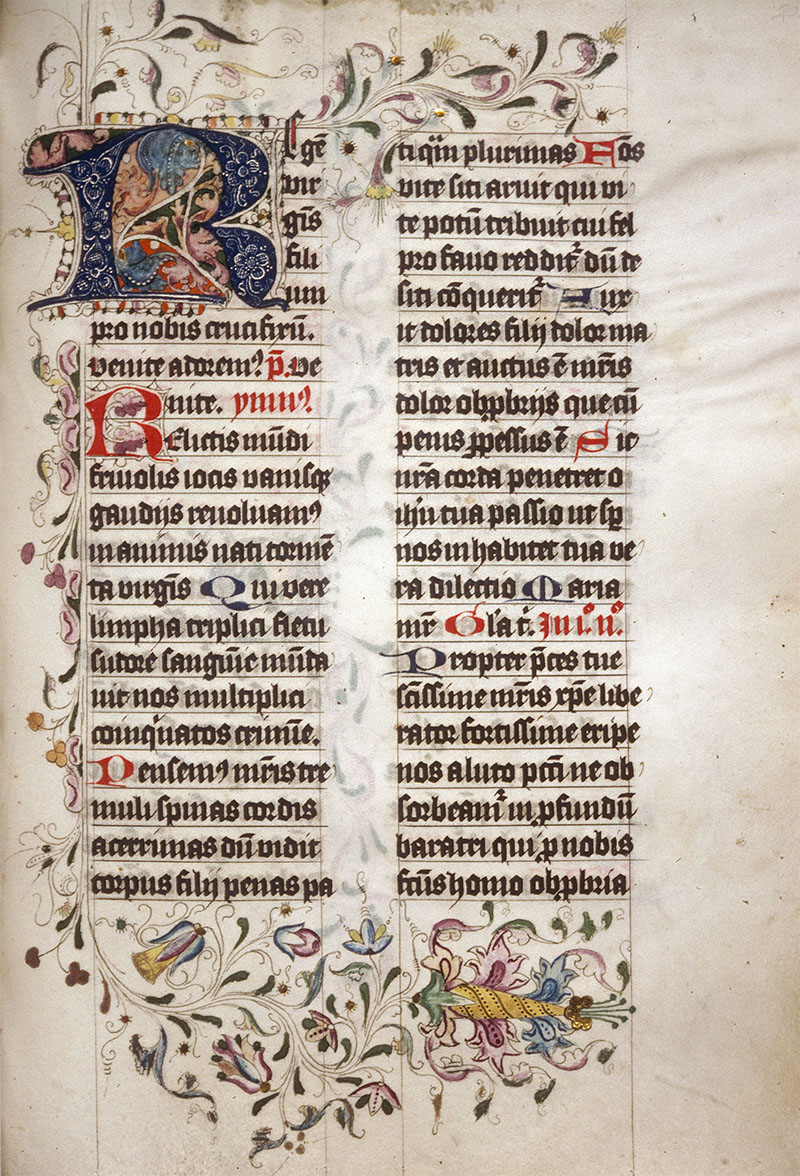 Regē
vir
gīs
fili
um
pro nobis crucifixū.
venite adorem᷒ p̄. Ve
nite. ymn᷒.
Relictis mūdi
frivolis iocis vanisqꝫ
gaudijs revoluam᷒
in animis nati tormē
ta virgīs Qui vere
limpha triplici fletu
sudore sanguīe mūda
vit nos multiplici
coinq̇natos crimīe.
Pensem᷒ mr̄is tre
muli spinas cordis
acerrimas dū vidit
corpus filij penas pa
ti qͣm plurimas Fōs
vite siti aruit qui vi
te potū tribuit cui fel
pro favo reddit᷑ dū de
siti cōquerit᷑ Aux
it dolores filij dolor ma
tris et auctus ē mr̄is
dolor obꝓbrijs que cū
penis ꝑpessus ē Sic
nr̄a corda penetret o
ih̄u tua passio ut sꝑ
nos inhabitet tua ve
ra dilectio Maria
mr̄ Gl̓a t᷑. In i.º n.º
Propter p̄ces tue
sc̄issime mr̄is xp̄e libe
rator fortissime eripe
nos a luto pct̄i ne ob
sorbeam᷑ in ꝓfundū
baratri qui ꝓ nobis
fc̄us homo obꝓbria